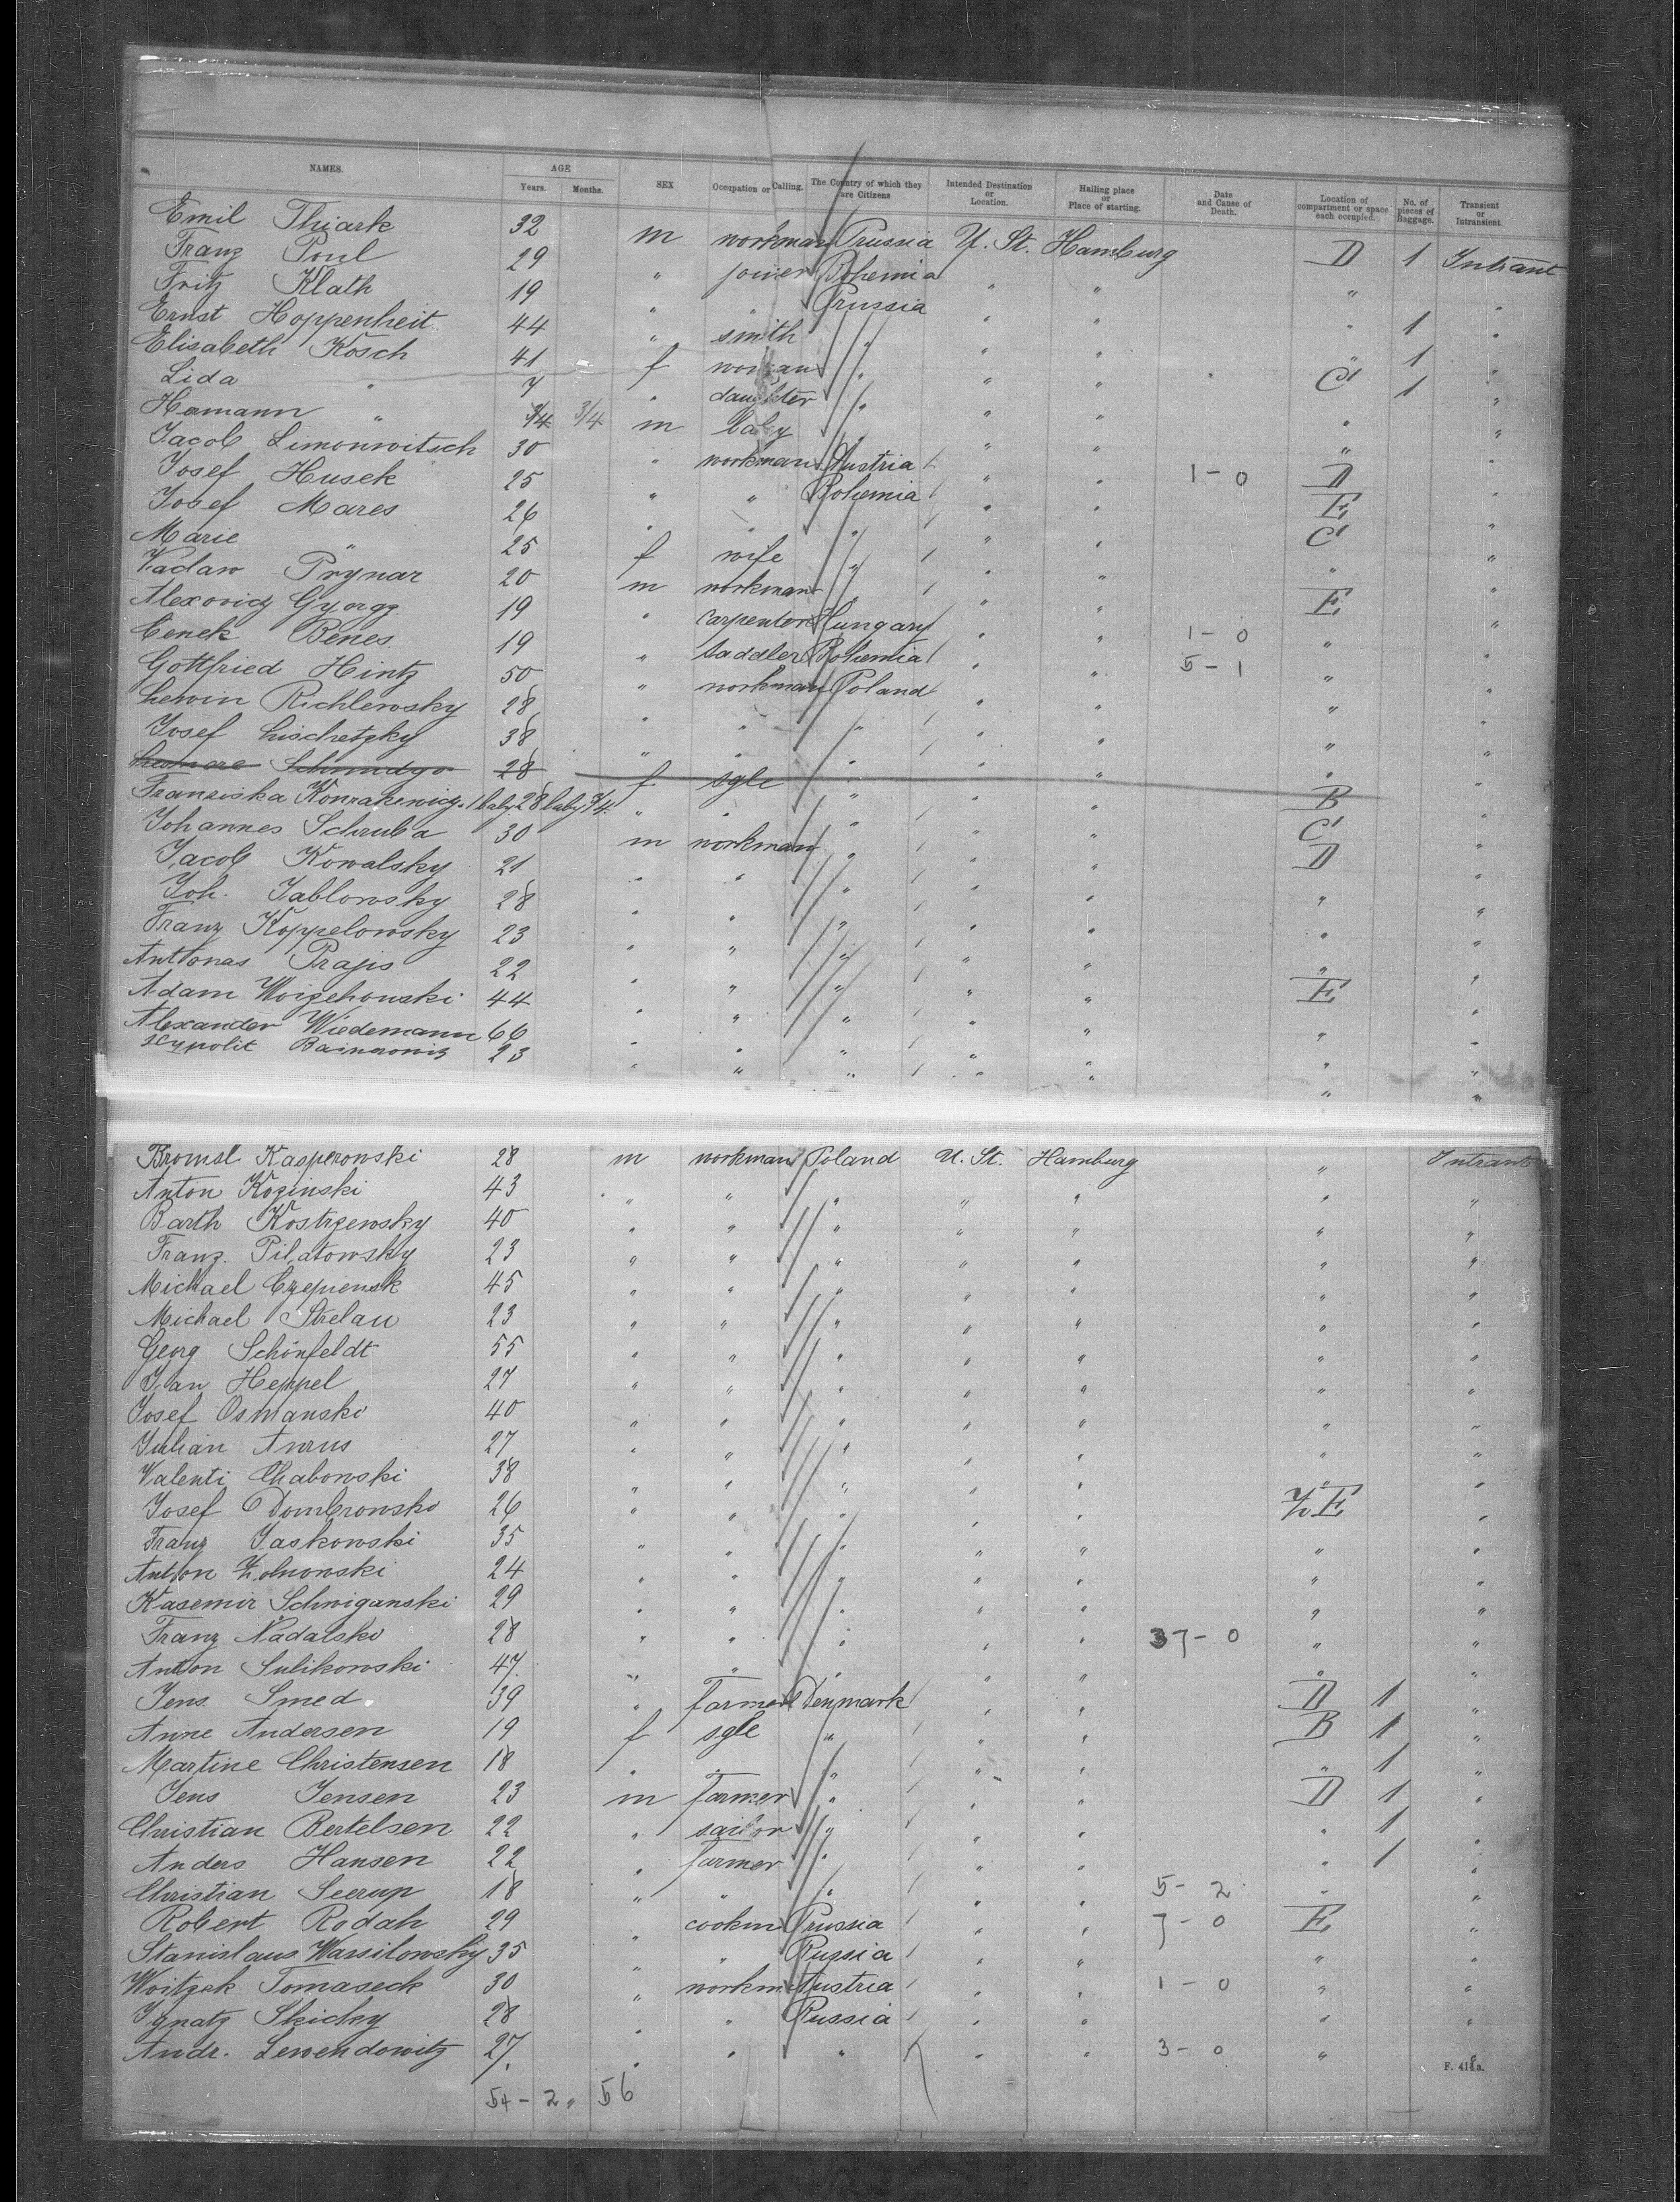 NAMES. AGE Years. Months. SEX Occupation or Calling. The Country of which they are Citizens Intended Destination or Location. Hailing place or Place of starting. Date and Cause of Death. Location of compartment or space each occupied. No. of pieces of Baggage. Transient or Intransient.
Emil Thiark 32 m workman Prussia U. St. Hamburg D 1 Intrant
Franz Poul 29 " joiner Bohemia " " "
Fritz Klath 19 " " Prussia " " " 1 "
Ernst Hoppenheit 44 " smith " " " " 1 "
Elisabeth Kosch 41 f woman " " " C 1 "
Lida " 7 " daughter " " " " "
Hermann " 3/4 3/4 m baby " " " " "
Jacob Limonwitsch 30 " workman Austria " " 1-0 D "
Josef Husek 25 " " Bohemia " " E "
Josef Mares 26 " " " " " C "
Marie " 25 f wife " " " " "
Vaclaw Prynar 20 m workman " " " E "
Alexovicz Gyorgz 19 " carpenter Hungary " " 1-0 " "
Cenek Benes 19 " saddler Bohemia " " 5-1 " "
Gottfried Hintz 50 " workman Poland " " " "
Lewin Richlewsky 28 " " " " " " "
Josef Lischetzky 38 " " " " " " "
28 f sgle " " B "
Franziska Konrakewicz. 1 baby 28 baby 3/4 " " " " " C "
Johannes Schruba 30 m workman " " " D "
Jacob Kowalsky 21 " " " " " " "
Joh. Jablowsky 28 " " " " " " "
Franz Koppelowsky 23 " " " " " " "
Antonas Prajis 22 " " " " " E "
Adam Woizehowski 44 " " " " " " "
Alexander Wiedemann 66 " " " " " " "
23 " " " " " " "
Bromsl Kasperowski 28 m workman Poland U. St. Hamburg " Intrant
Anton Kozinski 43 " " " " " " "
Barth Kostrzewsky 40 " " " " " " "
Franz. Pilatowsky 23 " " " " " " "
Michael Czepiensk 45 " " " " " " "
Michael Strelau 23 " " " " " " "
Georg Schönfeldt 55 " " " " " " "
Jan Heppel 27 " " " " " " "
Josef Osmanski 40 " " " " " " "
Julian Awrus 27 " " " " " " "
Valenti Chabowski 38 " " " " " " "
Josef Dombrowski 26 " " " " " E "
Franz Jaskowski 35 " " " " " " "
Anton Zolnowski 24 " " " " " " "
Kasemir Schwiganski 29 " " " " " " "
Franz Nadalski 28 " " " " " 37-0 " "
Anton Sulikowski 47 " " " " " " "
Jens Smed 39 " farmer Denmark " " D 1 "
Anne Andersen 19 f sgle " " " B 1 "
Martine Christensen 18 " " " " " " 1 "
Jens Jensen 23 m farmer " " " D 1 "
Christian Bertelsen 22 " sailor " " " " 1 "
Anders Hansen 22 " farmer " " " " 1 "
Christian Seerup 18 " " " " " 5-2 " "
Robert Rodah 29 " cookm Prussia " " 7-0 E "
Stanislaus Wassilowsky 35 " " Russia " " " "
Woitzek Tomaseck 30 " workm Austria " " 1-0 " "
Ignatz Skicky 28 " " Russia " " " "
Andr. Lewendowitz 27 " " " " " 3-0 " "
F. 411a.
54-2 " 56